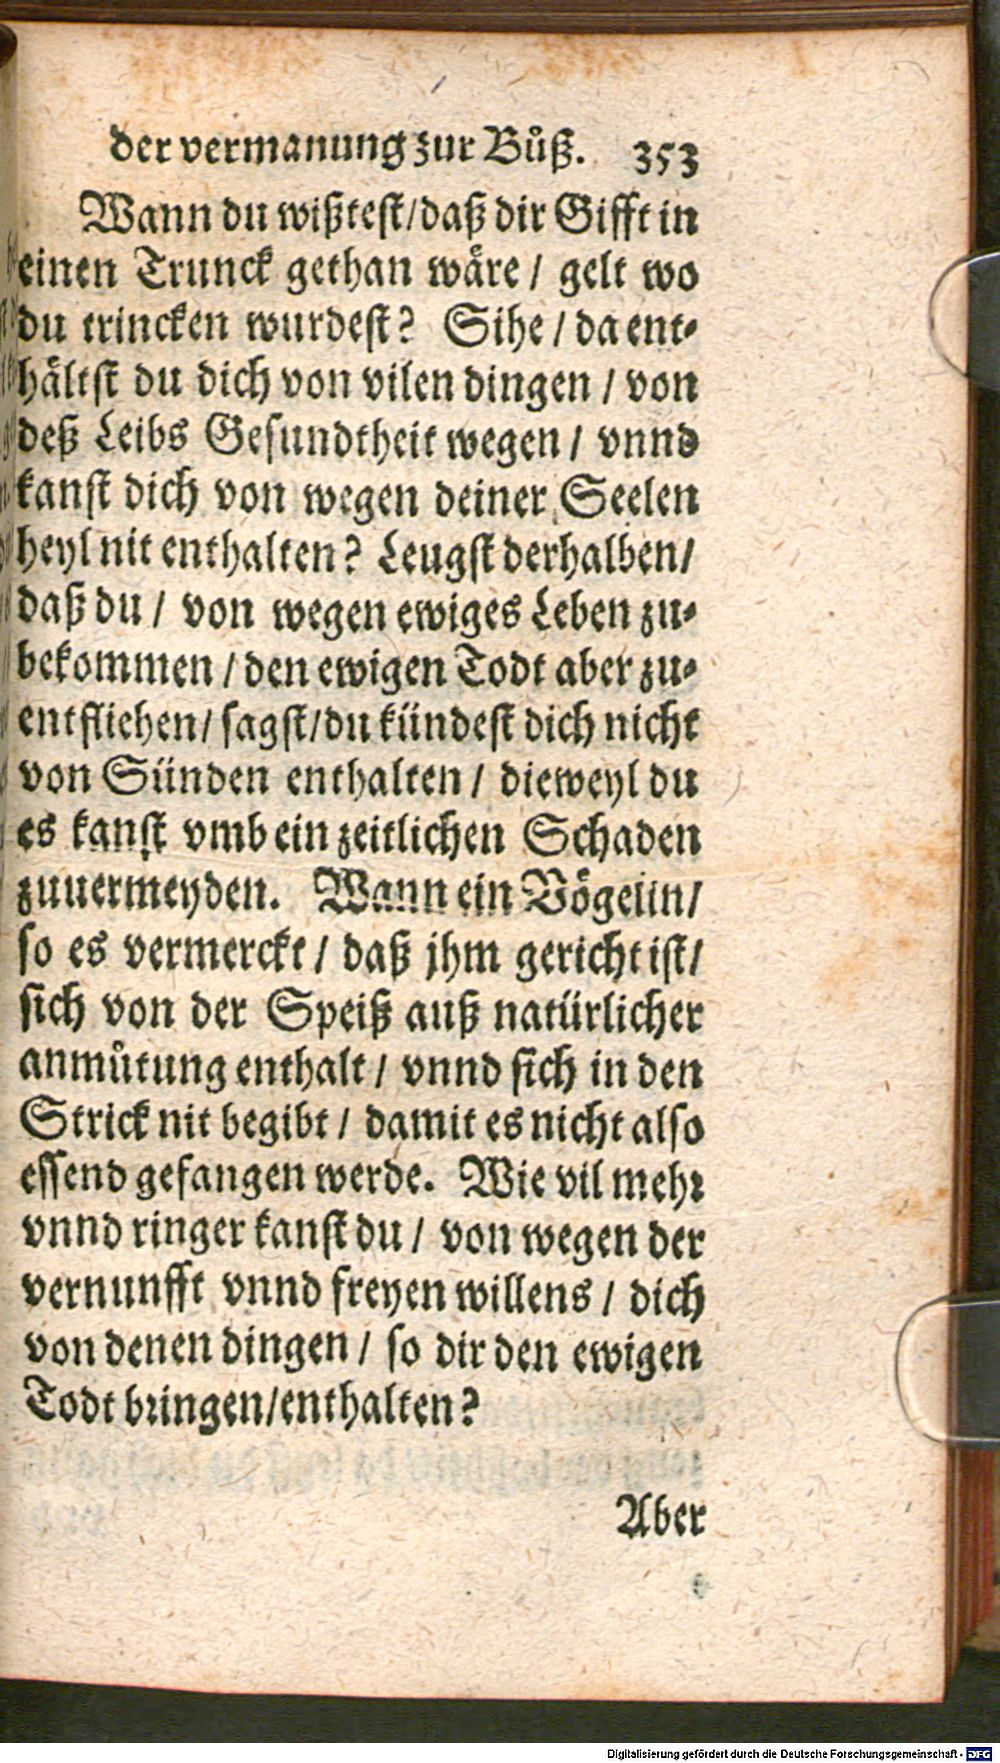 der vermanung zur Bůß. 353
Wann du wißtest/daß dir Gifft in
einen Trunck gethan wäre / gelt wo
du trincken wurdest? Sihe / da ent-
hältst du dich von vilen dingen / von
deß Leibs Gesundtheit wegen / vnnd
kanst dich von wegen deiner Seelen
heyl nit enthalten? Leugst derhalben/
daß du / von wegen ewiges Leben zu-
bekommen / den ewigen Todt aber zu-
entfliehen/ sagst/du kündest dich nicht
von Sünden enthalten / dieweyl du
es kanst vmb ein zeitlichen Schaden
zuuermeyden. Wann ein Vögelin/
so es vermerckt / daß jhm gericht ist/
sich von der Speiß auß natürlicher
anmůtung enthalt / vnnd sich in den
Strick nit begibt / damit es nicht also
essend gefangen werde. Wie vil mehr
vnnd ringer kanst du / von wegen der
vernunfft vnnd freyen willens / dich
von denen dingen / so dir den ewigen
Todt bringen/enthalten?
Aber
Digitalisierung gefördert durch die Deutsche Forschungsgemeinschaft - DFG